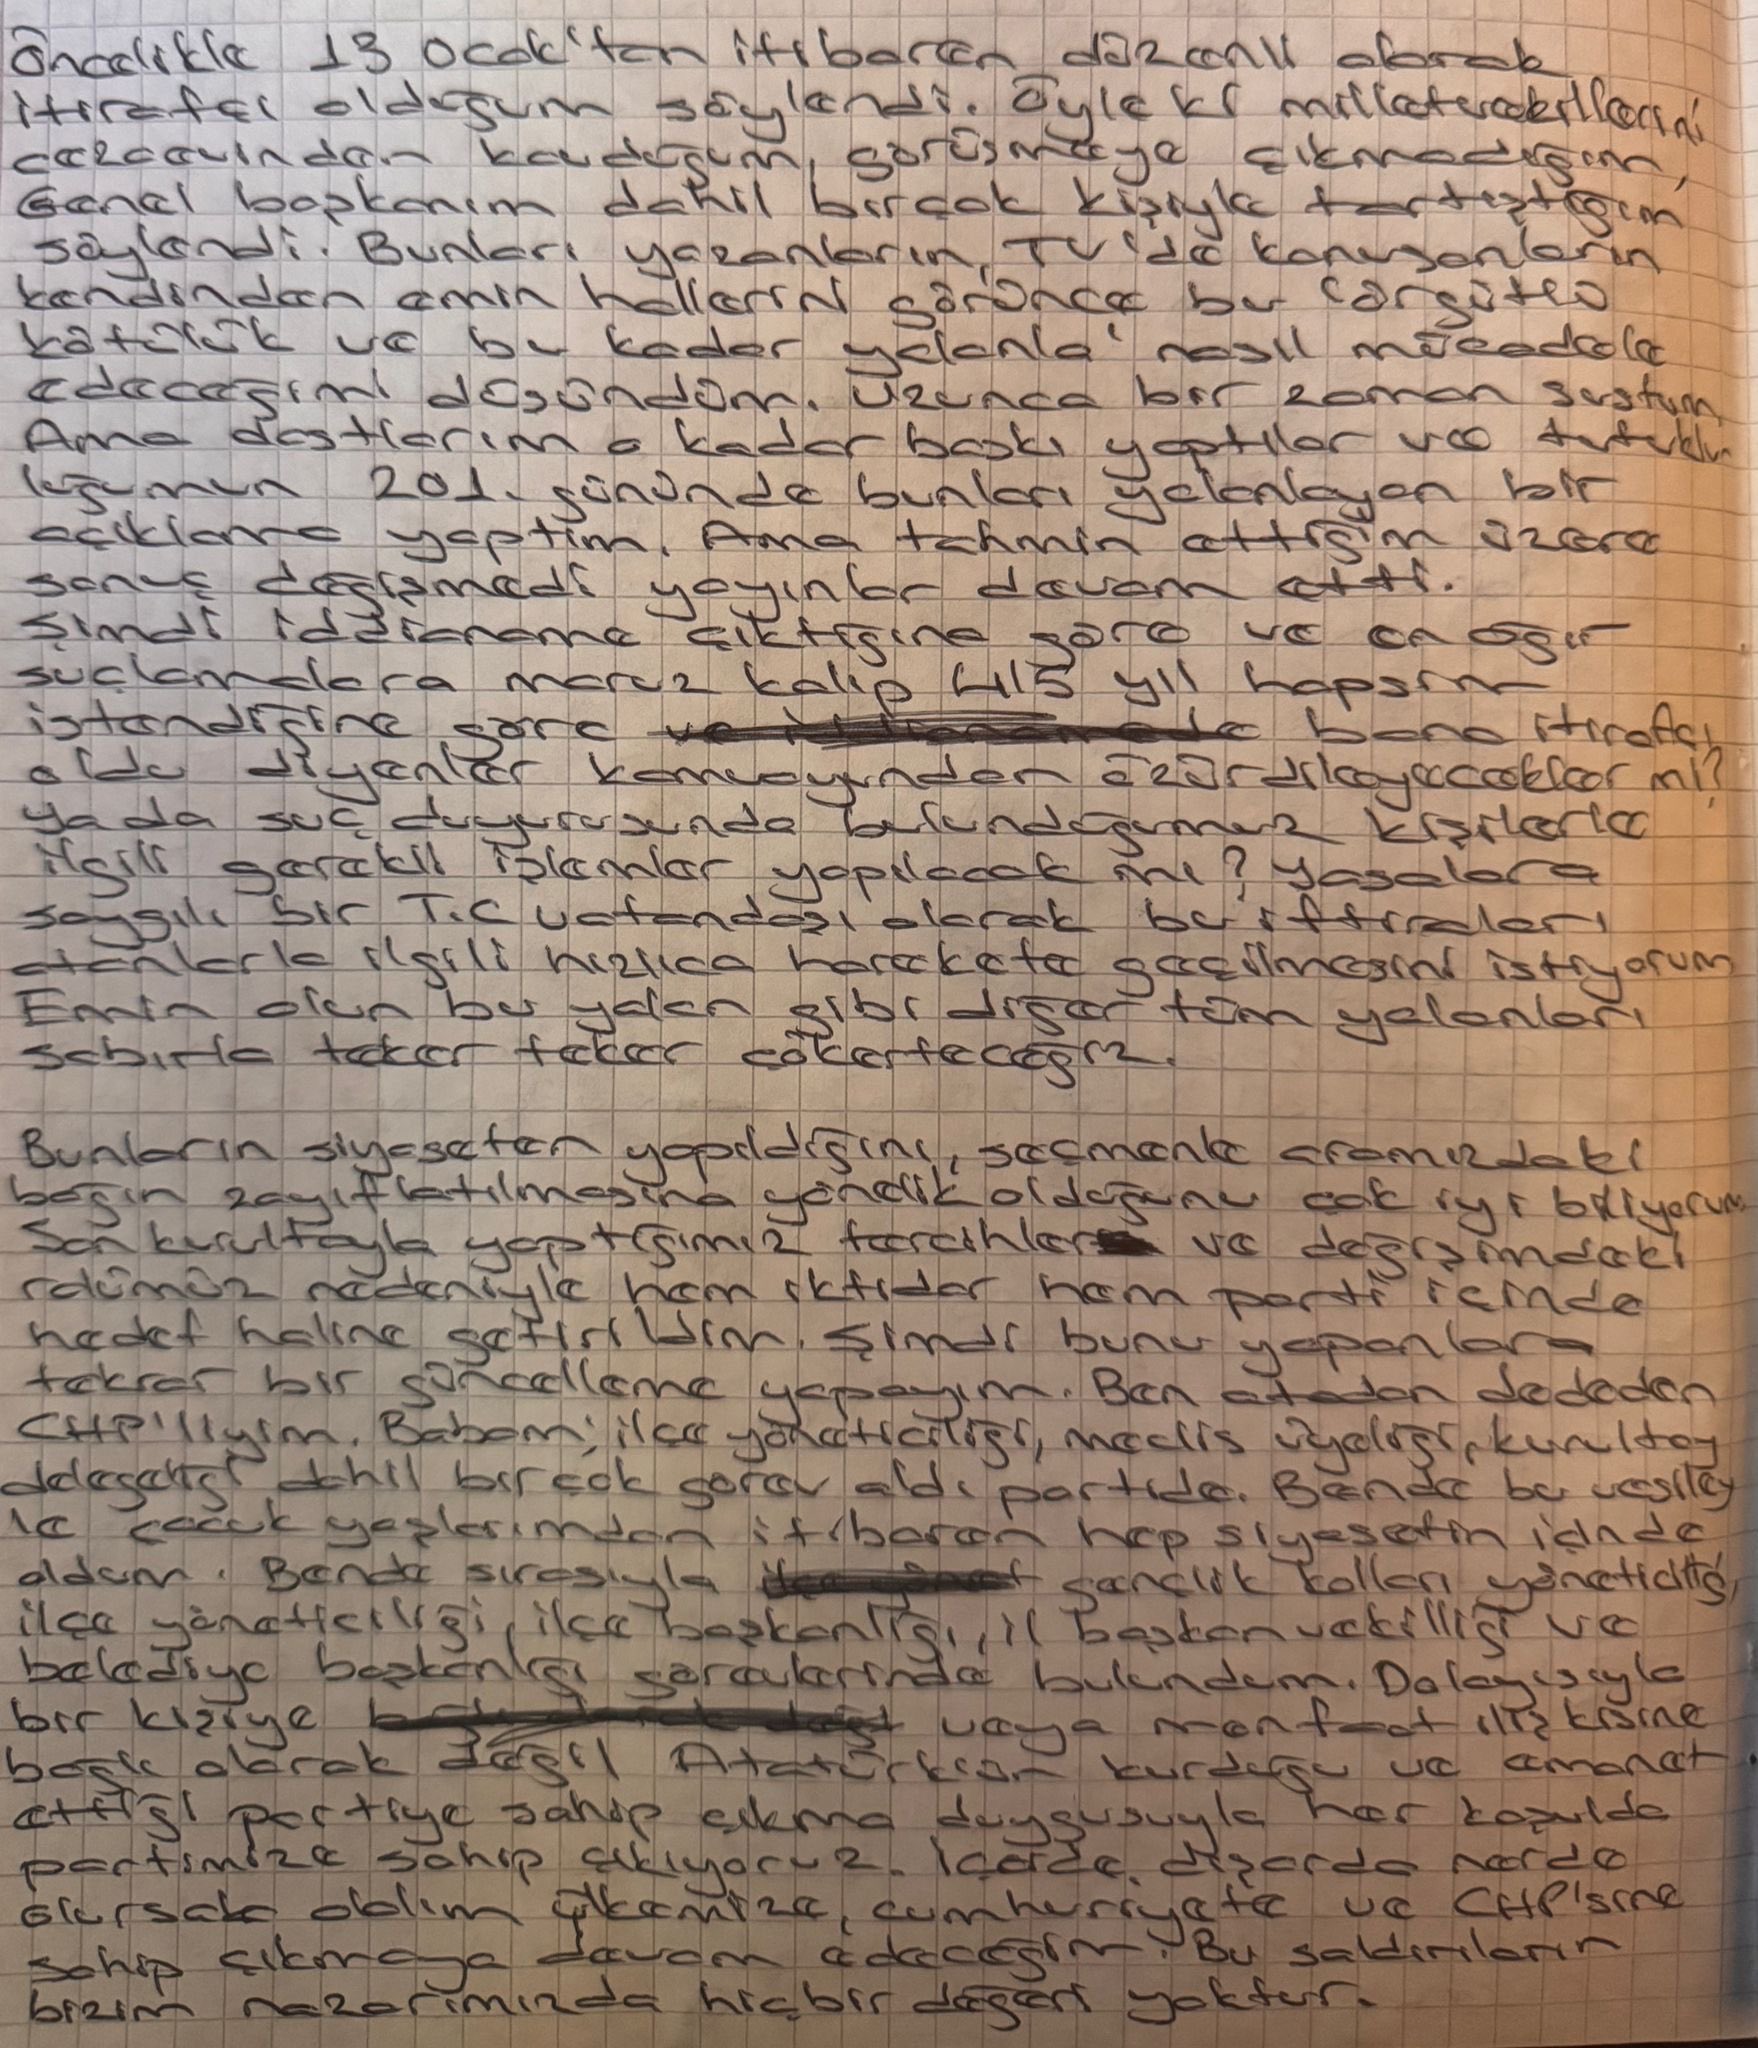 Öncelikle 13 Ocak'tan itibaren düzenli olarak
itirafçı olduğum söylendi. Öyle ki milletvekillerini
cezaevinden kovduğum, görüşmeye çıkmadığım,
Genel başkanım dahil birçok kişiyle tartıştığım
söylendi. Bunları yazanların, TV'de konuşanların
kendinden emin hallerini görünce bu 'örgütlü
kötülük ve bu kadar yalanla' nasıl mücadele
edeceğimi düşündüm. Uzunca bir zaman sustum
Ama dostlarım o kadar baskı yaptılar ve tutuklu
luğumun 201. gününde bunları yalanlayan bir
açıklama yaptım. Ama tahmin ettiğim üzere
sonuç değişmedi yayınlar devam etti.
Şimdi iddianame çıktığına göre ve en ağır
suçlamalara maruz kalıp 415 yıl hapsim
istendiğine göre bana itirafçı
oldu diyenler kamuoyundan özür dileyecekler mi?
ya da suç duyurusunda bulunduğumuz kişilerle
ilgili gerekli işlemler yapılacak mı? Yasalara
saygılı bir T.C vatandaşı olarak bu iftiraları
atanlarla ilgili hızlıca harekete geçilmesini istiyorum
Emin olun bu yalan gibi diğer tüm yalanları
sabırla teker teker çökerteceğiz.

Bunların siyaseten yapıldığını, seçmenle aramızdaki
bağın zayıflatılmasına yönelik olduğunu çok iyi biliyorum.
Son kurultayla yaptığımız tercihler ve değişimdeki
rolümüz nedeniyle hem iktidar hem parti içinde
hedef haline getirildim. Şimdi bunu yapanlara
tekrar bir güncelleme yapayım. Ben atadan dededen
CHP'liyim. Babam; ilçe yöneticiliği, meclis üyeliği, kurultay
delegeliği dahil birçok görev aldı partide. Bende bu vesiley
le çocuk yaşlarımdan itibaren hep siyasetin içinde
oldum. Bende sırasıyla gençlik kolları yöneticiliği,
ilçe yöneticiliği, ilçe başkanlığı, il başkan vekilliği ve
belediye başkanlığı görevlerinde bulundum. Dolayısıyla
bir kişiye veya menfaat ilişkisine
bağlı olarak değil Atatürk'ün kurduğu ve emanet
ettiği partiye sahip çıkma duygusuyla her koşulda
partimize sahip çıkıyoruz. İçerde, dışarda nerde
olursak olalım ülkemize, cumhuriyete ve CHP'sine
sahip çıkmaya devam edeceğim. Bu saldırıların
bizim nazarımızda hiçbir değeri yoktur.